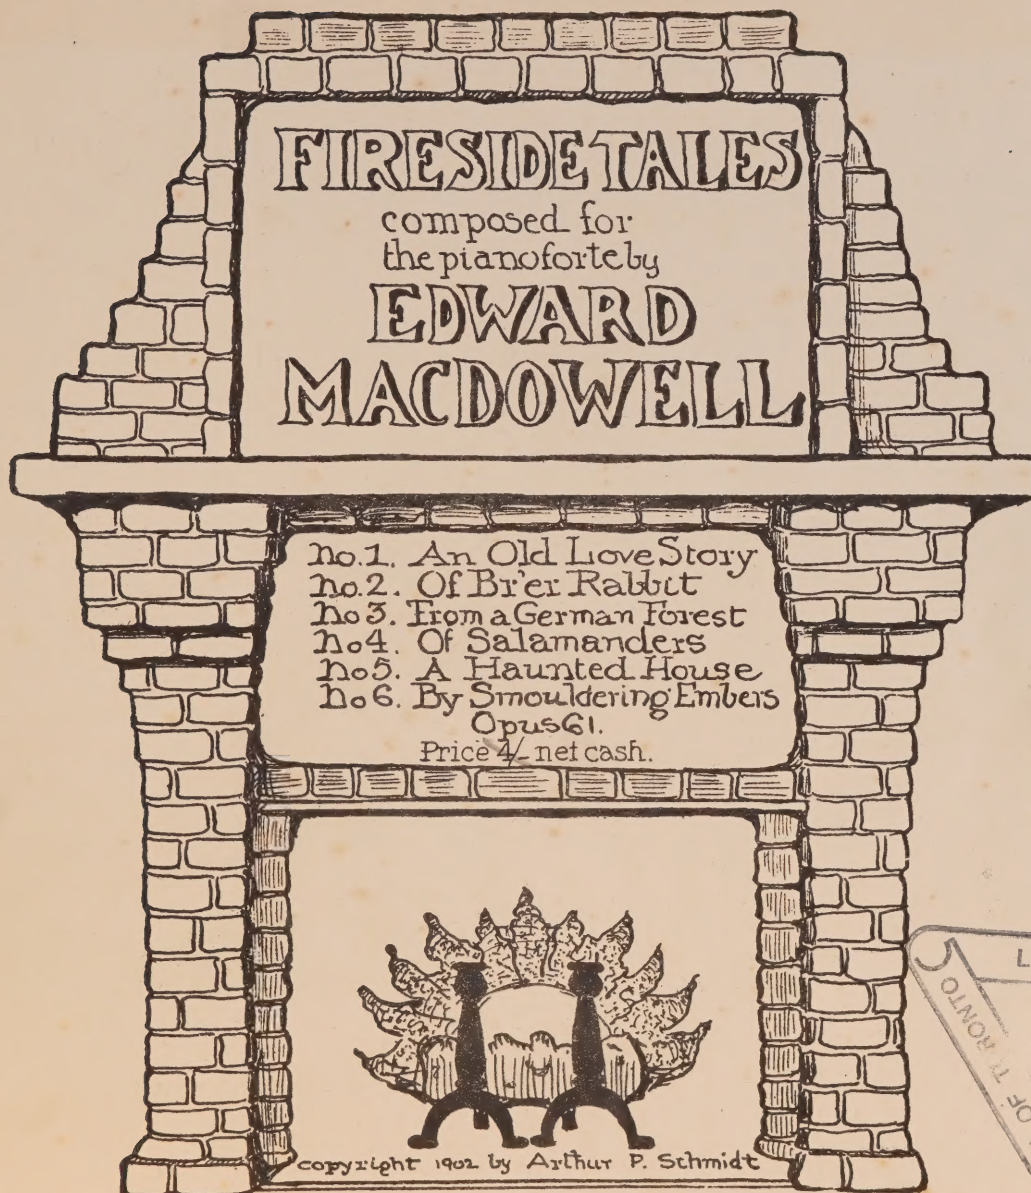 FIRESIDE TALES
composed for
the pianoforte by
EDWARD
MACDOWELL
No.1. An Old Love Story
No.2. Of Br'er Rabbit
No3. From a German Forest
No4. Of Salamanders
No5. A Haunted House
No6. By Smouldering Embers
Opus 61.
Price 4/- net cash.
copyright 1902 by Arthur P. Schmidt
OF TORONTO